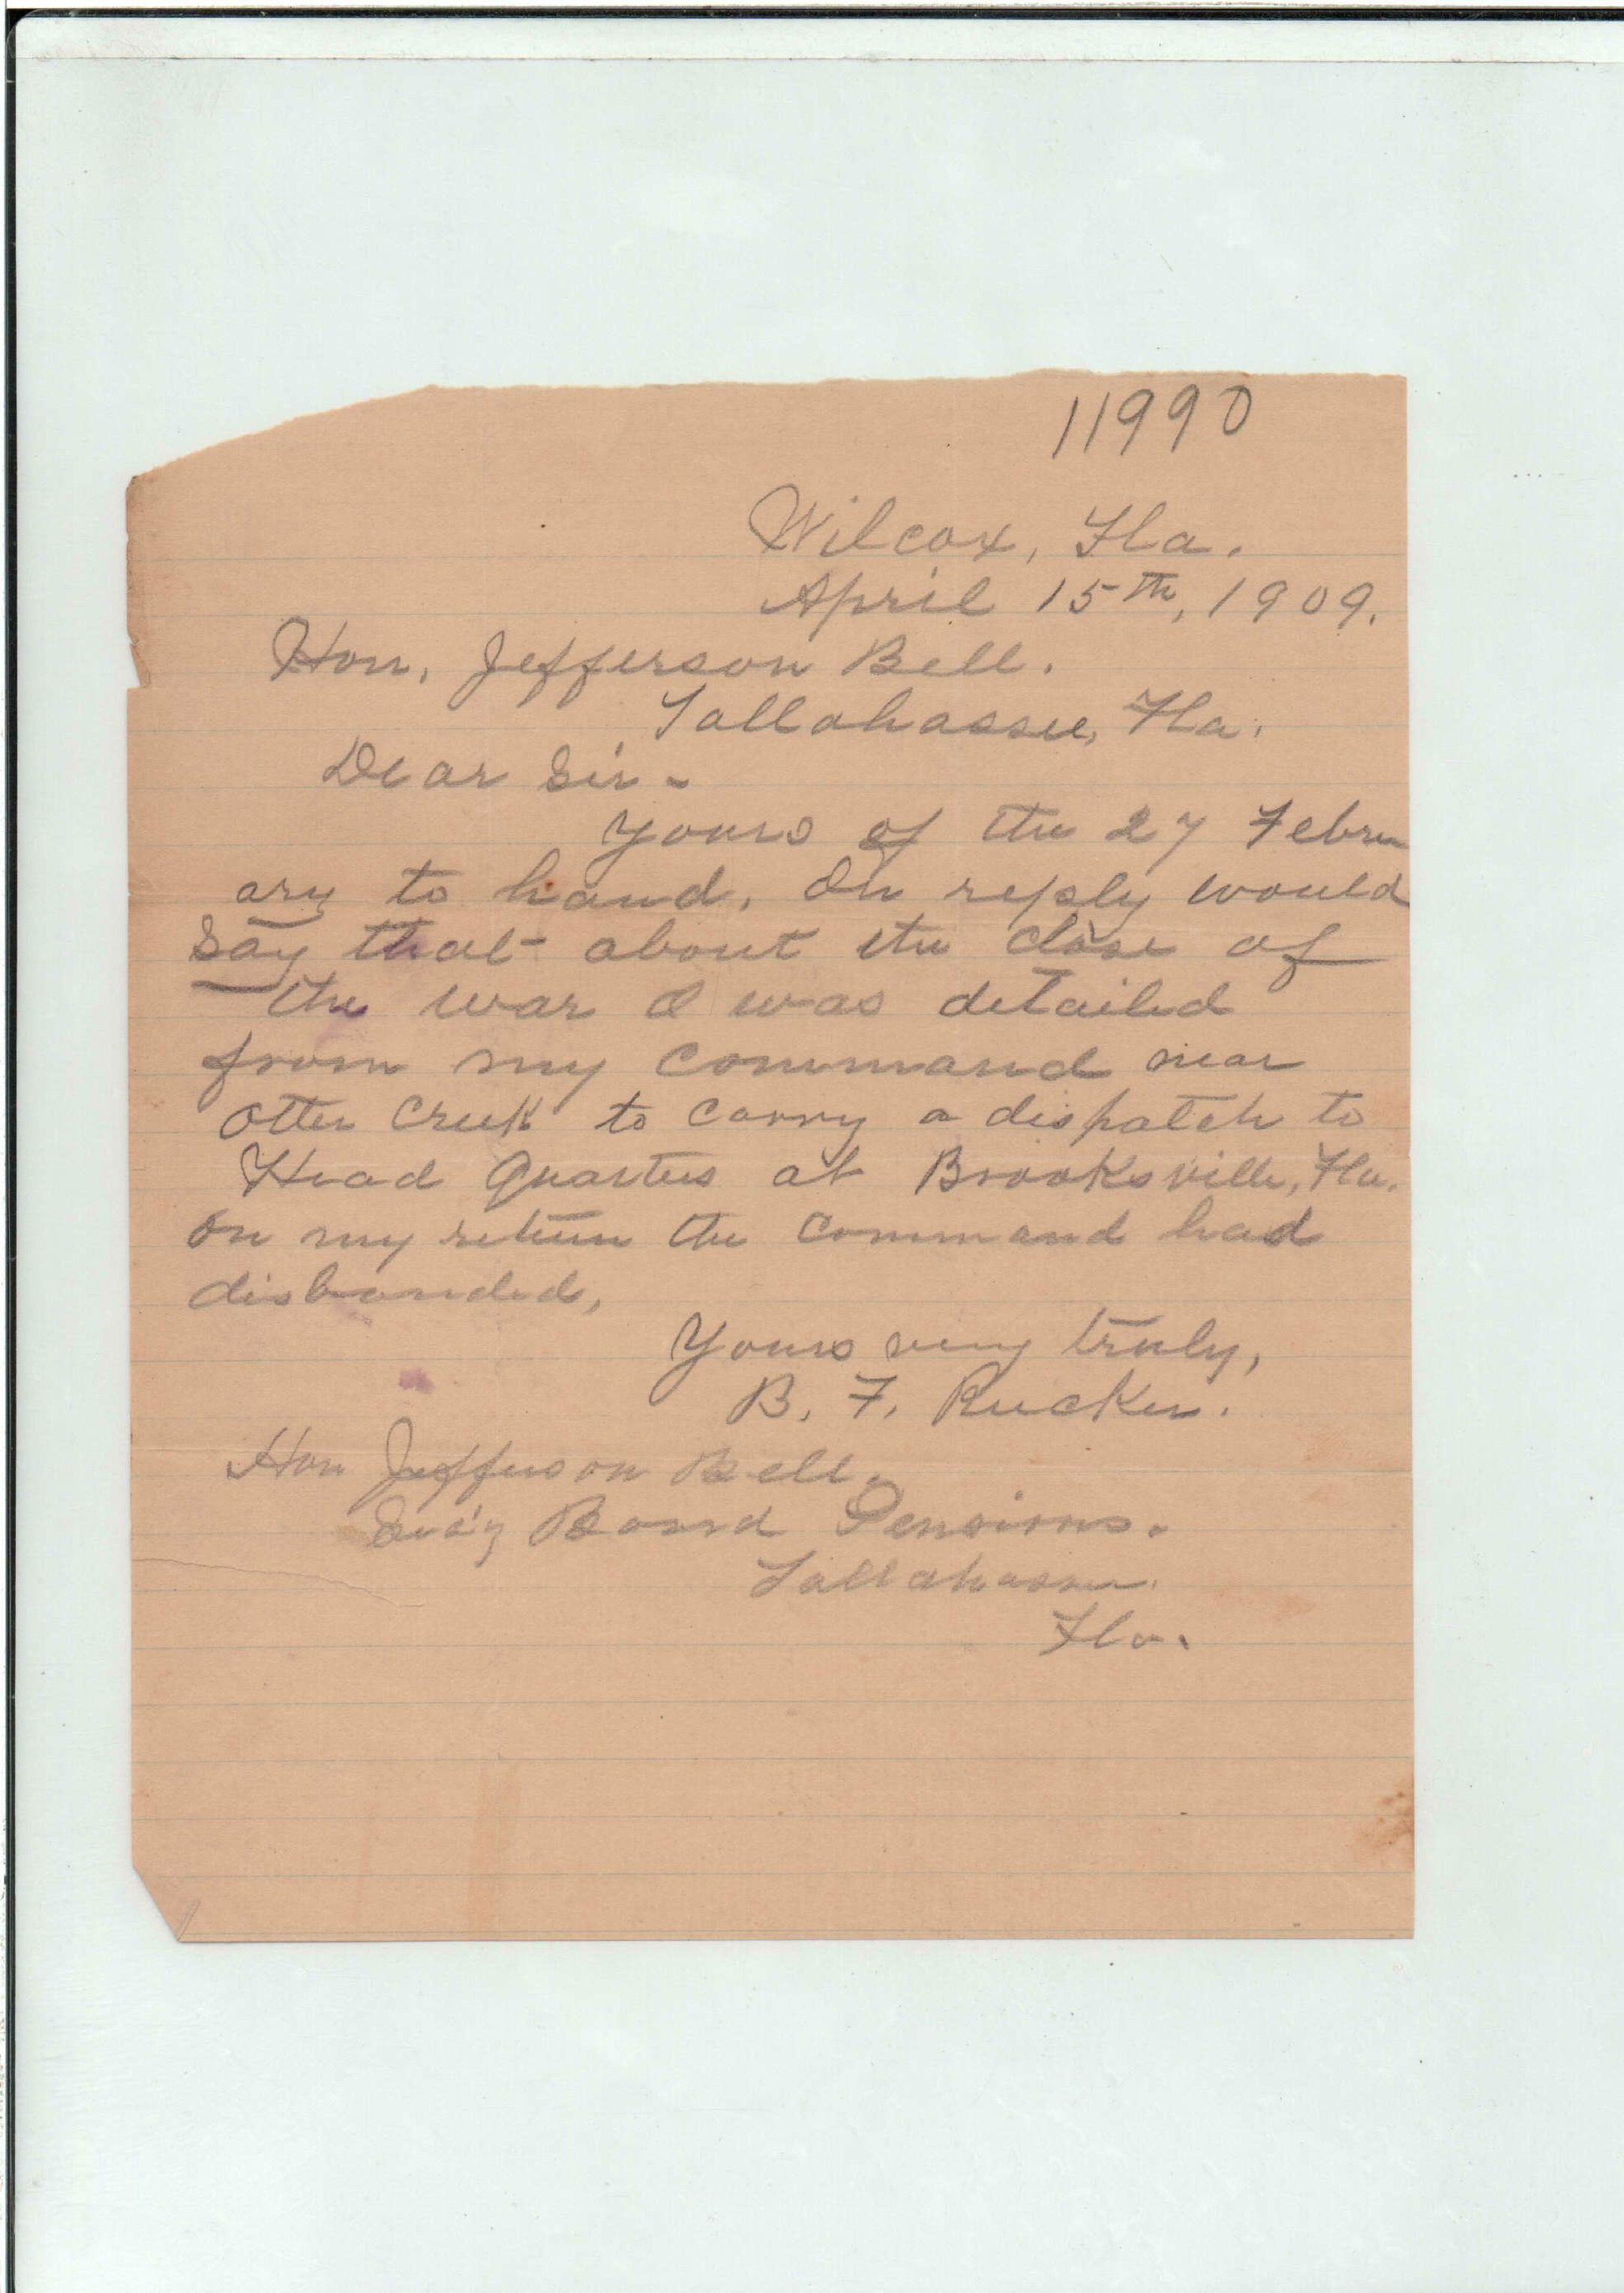 11990
Wilcox, Fla.
April 15th, 1909.
Hon, Jefferson Bell.
Tallahassee, Fla.
Dear Sir-
Yours of the 27 Febru
ary to hand. In reply would
say that about the close of
the war I was detailed
from my command near
Otter Creek to carry a dispatch to
Head Quarters at Brooksville, Fla.
On my return the command had
disbanded,
Yours very truly,
B. F. Rucker.
Hon Jefferson Bell.
Sec'y Board Pensions.
Tallahassee.
Fla.